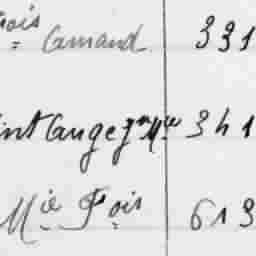 ois Camand 331
int Cange Jn Mie 341
Mie Fois 613